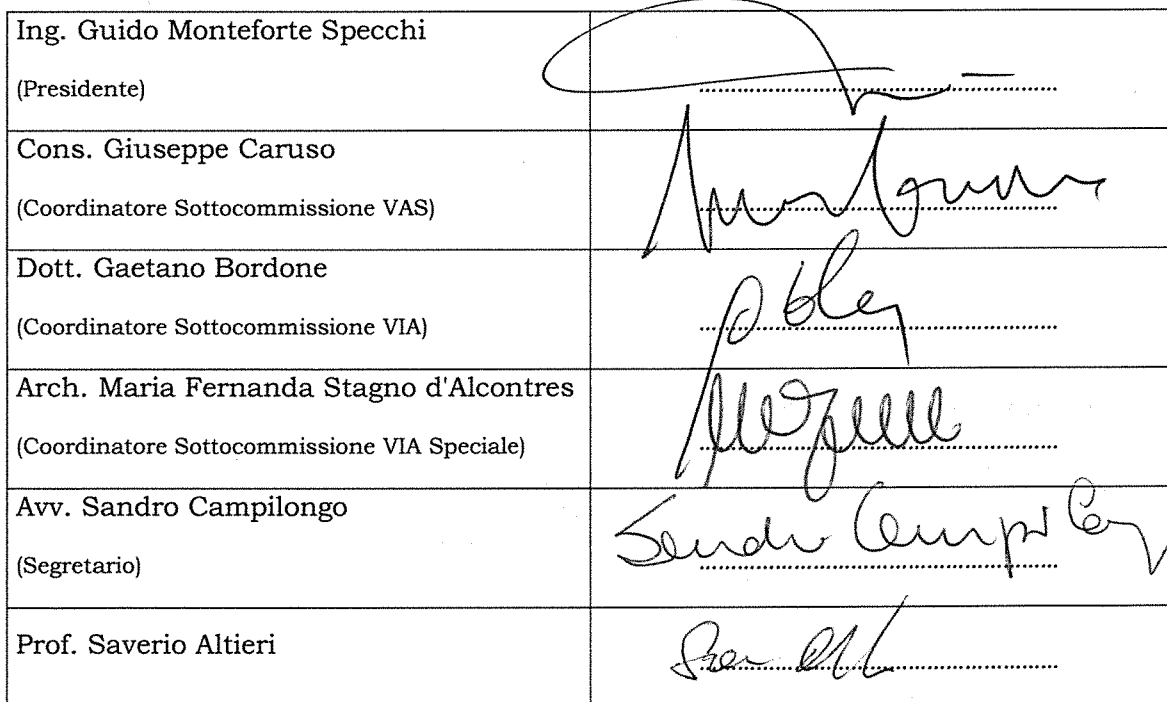 Ing. Guido Monteforte Specchi
(Presidente)
Cons. Giuseppe Caruso
(Coordinatore Sottocommissione VAS)
Dott. Gaetano Bordone
(Coordinatore Sottocommissione VIA)
Arch. Maria Fernanda Stagno d'Alcontres
(Coordinatore Sottocommissione VIA Speciale)
Avv. Sandro Campilongo
(Segretario)
Prof. Saverio Altieri